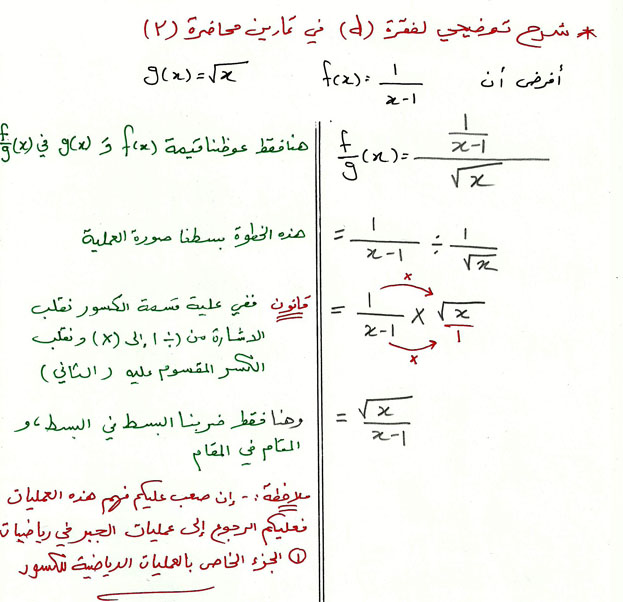 * شرح توضيحي لفقرة (d) في تمارين محاضرة (٢)
أفرض أن f(x) = 1/(x-1) g(x) = √x
f/g (x) = (1/(x-1))/√x
هنا فقط عوظنا قيمة f(x) و g(x) في f/g (x)
= 1/(x-1) ÷ 1/√x
هذه الخطوة بسطنا صورة العملية
= 1/(x-1) × √x/1
x
x
قانون ففي علية قسمة الكسور نقلب
الاشارة من (÷) إلى (x) ونقلب
الكسر المقسوم عليه (الثاني)
= √x/(x-1)
وهنا فقط ضربنا البسط في البسط، و
المقام في المقام
ملاحظة :- إن صعب عليكم فهم هذه العمليات
فعليكم الرجوع إلى عمليات الجبر في رياضيات
① الجزء الخاص بالعمليات الرياضية للكسور